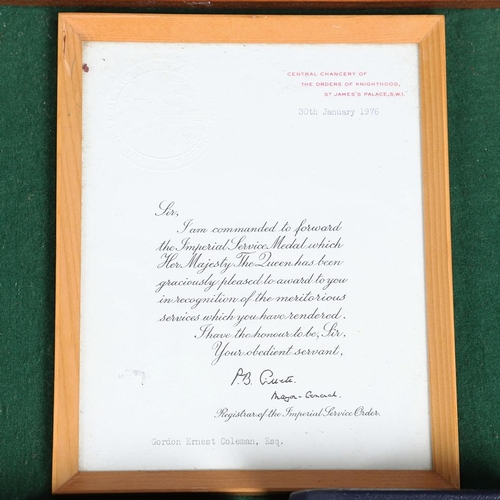 CENTRAL CHANCERY OF
THE ORDERS OF KNIGHTHOOD,
ST JAMES'S PALACE, S.W.1.
30th January 1976
Sir,
I am commanded to forward
the Imperial Service Medal which
Her Majesty The Queen has been
graciously pleased to award to you
in recognition of the meritorious
services which you have rendered.
I have the honour to be, Sir,
Your obedient servant,
P.B.
Major-General.
Registrar of the Imperial Service Order.
Gordon Ernest Coleman, Esq.